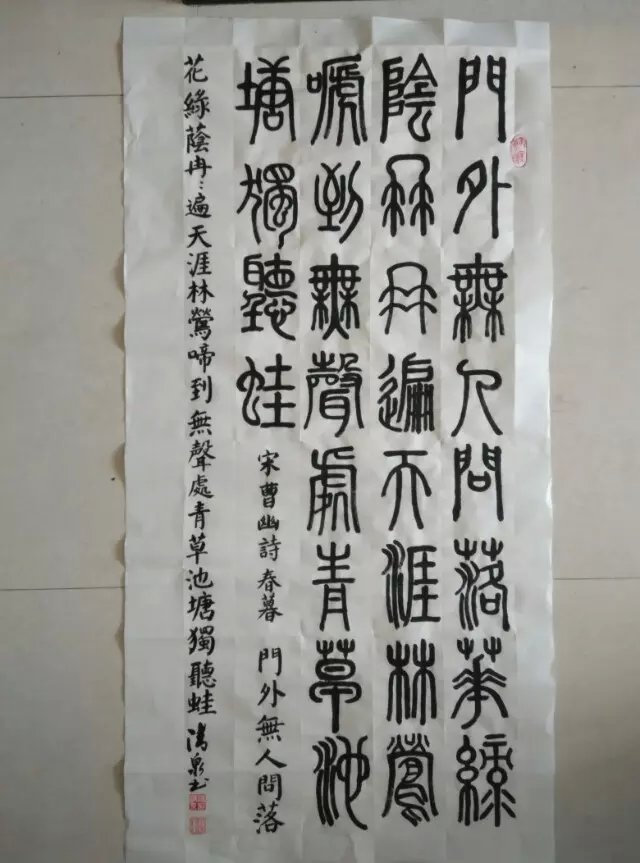 門外無人問落華綠
陰冉冉遍天涯林鶯
嗁到無聲處青草池
塘獨聽蛙
宋曹幽詩春暮 門外無人問落
花綠蔭冉〻遍天涯林鶯啼到無聲處青草池塘獨聽蛙 清泉书